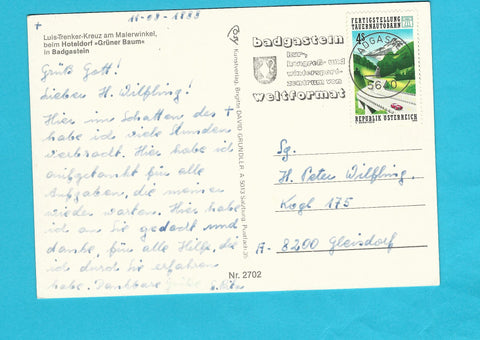 + 16-09-1993
Luis-Trenker-Kreuz am Malerwinkel,
beim Hoteldorf »Grüner Baum«
in Badgastein
Grüß Gott!
Lieber H. Wilfling!
Hier im Schatten des +
habe ich viele Stunden
verbracht. Hier habe ich
aufgetankt für alle
Aufgaben, die meiner
wieder warten. Hier habe
ich an Sie gedacht und
danke, für alle Hilfe, die
ich durch Sie erfahren
habe. Dankbare Grüße
Nr. 2702
Kunstverlag, Brigitte DAVID GRÜNDLER, A 5033 Salzburg, Postfach 35
badgastein
kur-,
kongreß- und
wintersport-
zentrum von
weltformat
BADGASTEIN
5640
FERTIGSTELLUNG
TAUERNAUTOBAHN
4S
REPUBLIK ÖSTERREICH
Sg.
H. Peter Wilfling.
Kogl 175
A- 8200 Gleisdorf